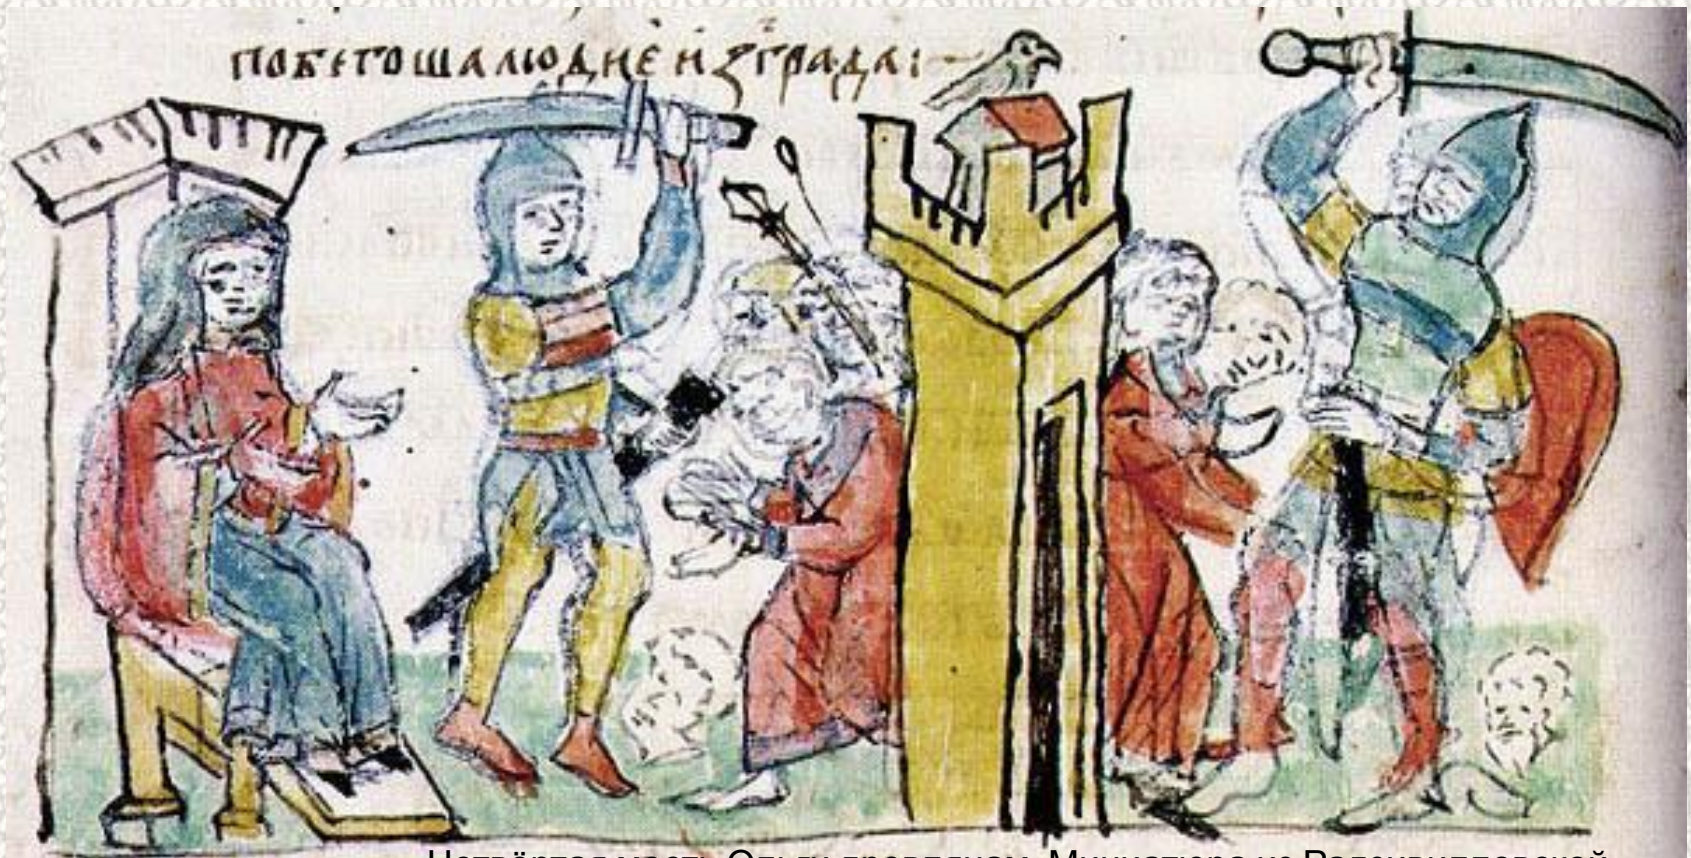 побегоша людие из града:
Четвёртая месть Ольги древлянам. Миниатюра из Радзивилловской